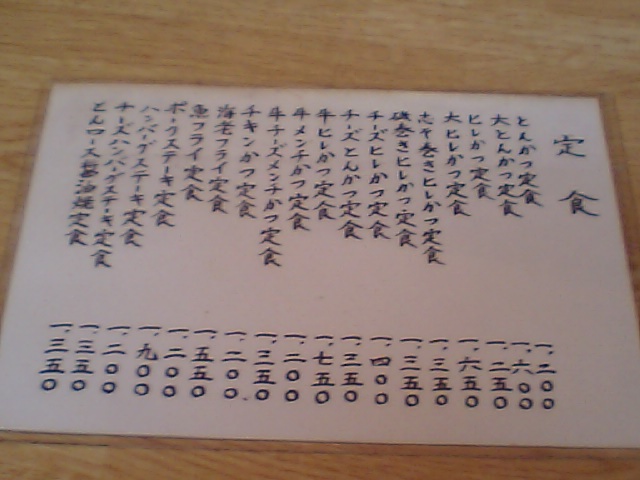 定食
とんかつ定食 一.二〇〇
大とんかつ定食 一.六〇〇
ヒレかつ定食 一.二五〇
大ヒレかつ定食 一.六五〇
志そ巻きヒレかつ定食 一.三五〇
磯巻きヒレかつ定食 一.三五〇
チーズヒレかつ定食 一.四〇〇
チーズとんかつ定食 一.三五〇
牛ヒレかつ定食 一.七五〇
牛メンチかつ定食 一.二〇〇
牛チーズメンチかつ定食 一.三五〇
チキンかつ定食 一.二〇〇
海老フライ定食 一.五五〇
魚フライ定食 一.二〇〇
ポークステーキ定食 一.九〇〇
ハンバーグステーキ定食 一.二〇〇
チーズハンバーグステーキ定食 一.三五〇
とんロース醤油焼定食 一.三五〇